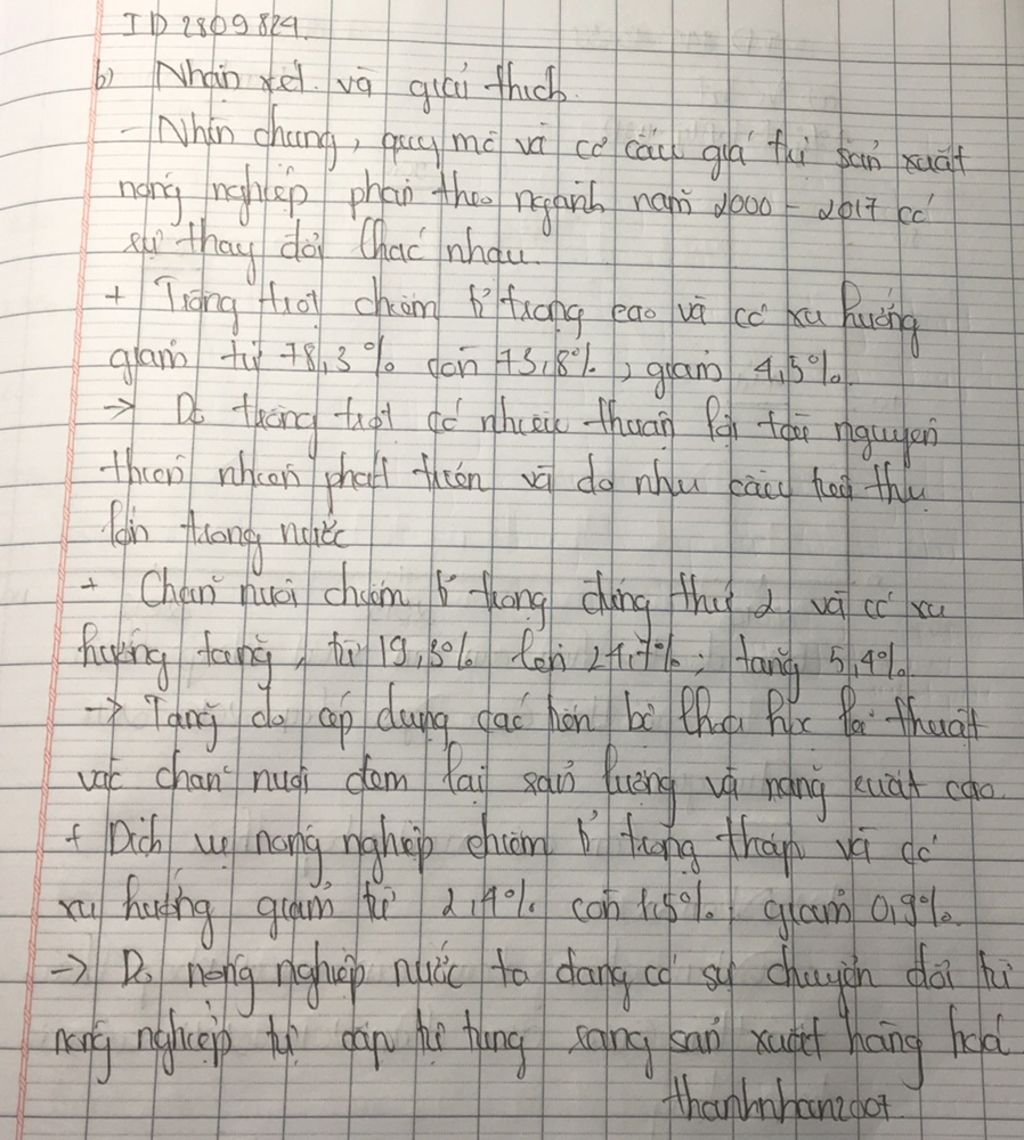 ID 2809824.
b) Nhận xét và giải thích.
- Nhìn chung, quy mô và cơ cấu giá trị sản xuất
nông nghiệp phân theo ngành năm 2000 - 2017 có
sự thay đổi khác nhau.
+ Trồng trọt chiếm tỉ trọng cao và có xu hướng
giảm từ 78,3% còn 73,8%, giảm 4,5%.
→ Do trồng trọt có nhiều thuận lợi tài nguyên
thiên nhiên phát triển và do nhu cầu tiêu thụ
lớn trong nước
+ Chăn nuôi chiếm tỉ trọng đứng thứ 2 và có xu
hướng tăng, từ 19,3% lên 24,7%; tăng 5,4%.
→ Tăng do áp dụng các tiến bộ khoa học kĩ thuật
vào chăn nuôi đem lại sản lượng và năng suất cao.
+ Dịch vụ nông nghiệp chiếm tỉ trọng thấp và có
xu hướng giảm từ 2,4% còn 1,5%, giảm 0,9%.
→ Do nông nghiệp nước ta đang có sự chuyển đổi từ
nông nghiệp tự cấp tự túng sang sản xuất hàng hoá
thanhnhan2007